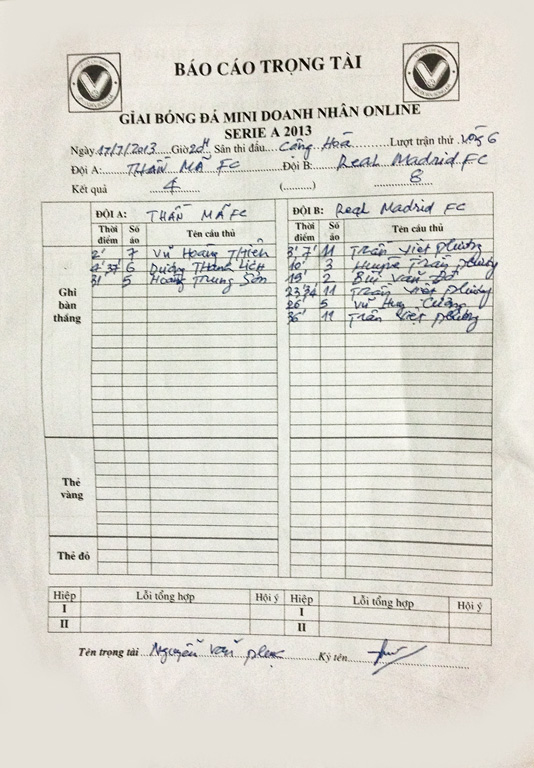 BÁO CÁO TRỌNG TÀI
GIẢI BÓNG ĐÁ MINI DOANH NHÂN ONLINE
SERIE A 2013
Ngày 17/7/2013 Giờ 20H Sân thi đấu Cộng Hoà Lượt trận thứ Vòng 6
Đội A: THẦN MÃ FC Đội B: Real Madrid FC
Kết quả 4 (..........) 8
ĐỘI A: THẦN MÃ FC ĐỘI B: Real Madrid FC
Thời điểm Số áo Tên cầu thủ Thời điểm Số áo Tên cầu thủ
Ghi bàn thắng
2' 7 Vũ Hoàng Thiên 3' 7' 11 Trần Việt Phương
4' 37' 6 Dương Thanh Lịch 10' 3 Huỳnh Trấn Phương
31' 5 Hoàng Trung Sơn 19' 2 Bùi Văn
23' 34' 11 Trần Việt Phương
26' 5 Vũ Huy Cường
36' 11 Trần Việt Phương
Thẻ vàng
Thẻ đỏ
Hiệp Lỗi tổng hợp Hội ý Hiệp Lỗi tổng hợp Hội ý
I I
II II
Tên trọng tài Nguyễn Văn Ký tên